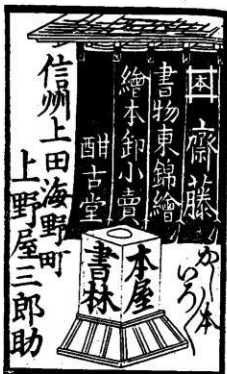 本 齋藤
書物東錦繪
繪本卸小賣
酣古堂
かし本
いろ〱
本屋
書林
信州上田海野町
上野屋三郎助